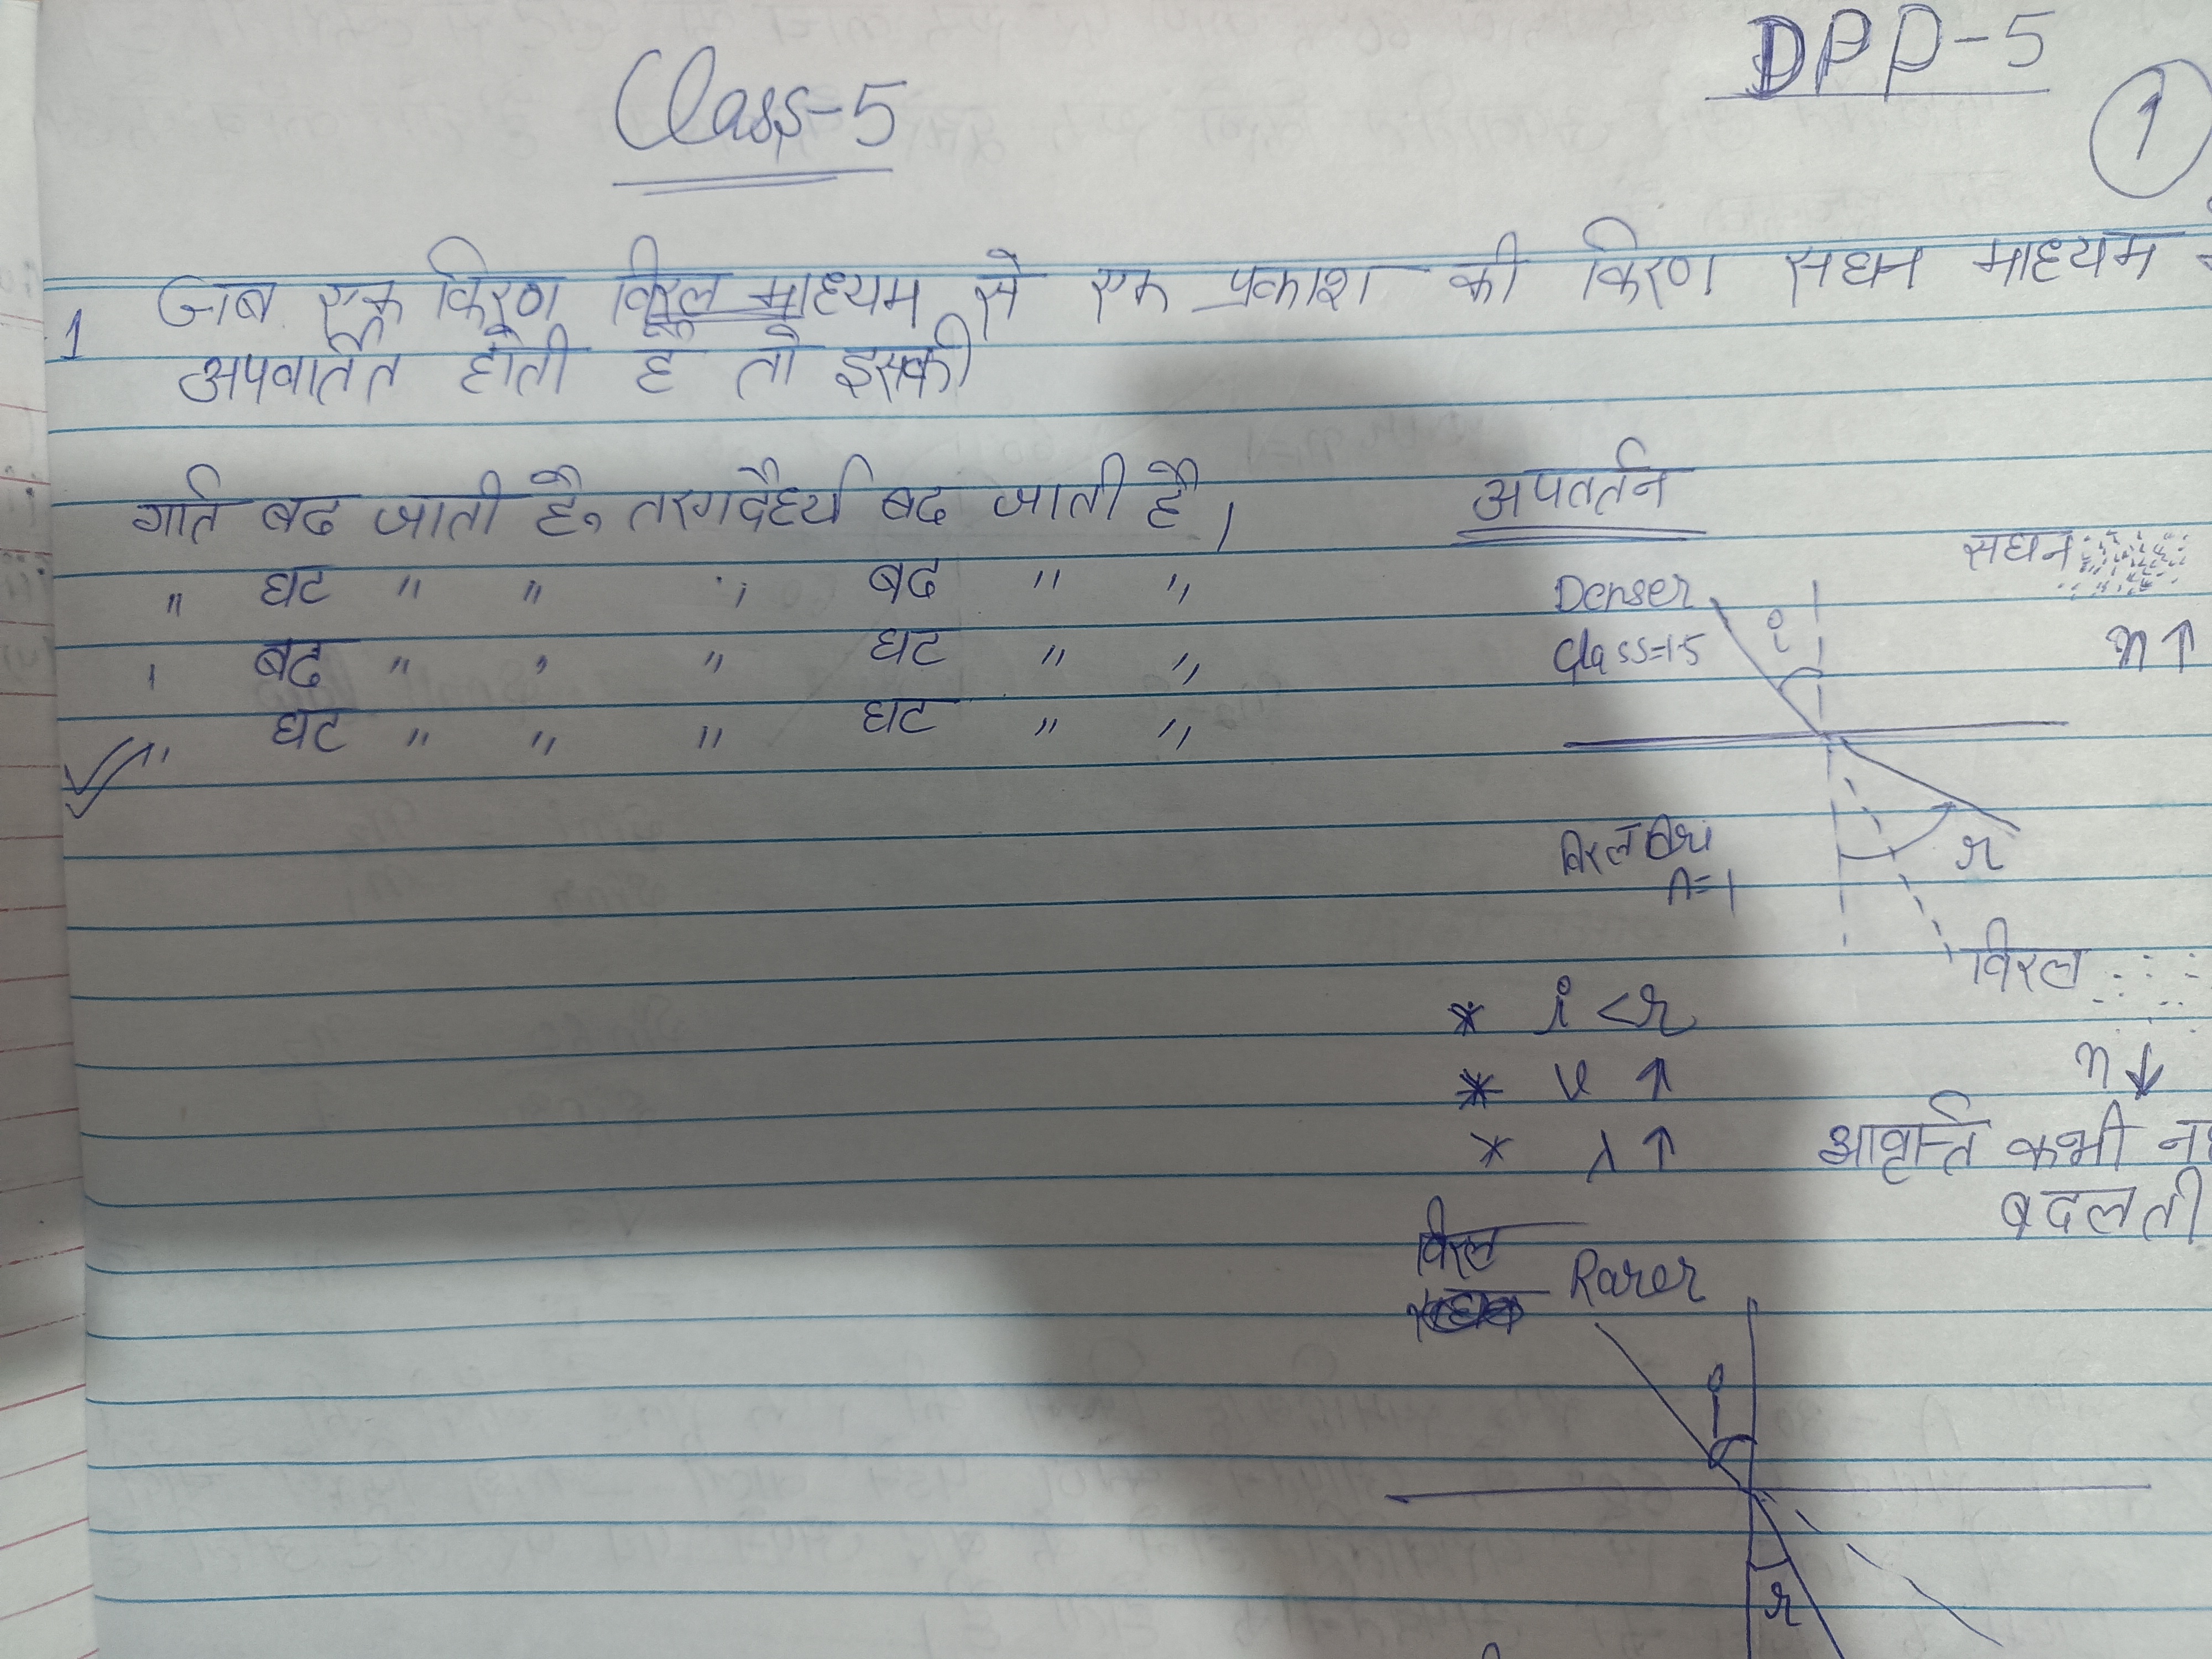 Class-5
DPP-5
1
1 जब एक किरण विरल माध्यम से एक प्रकाश की किरण सघन माध्यम
अपवर्तित होती है तो इसकी
गति बढ जाती है, तरगदैर्ध्य बढ जाती है।
" घट " " " बढ " "
" बढ " " " घट " "
" घट " " " घट " "
अपवर्तन
सघन
Denser
Glass=1.5
i
n↑
विरल
n=1
r
विरल
* i < r
n↓
* v ↑
* λ ↑
आवृत्ति कभी
बदलती
विरल
Rarer
i
r